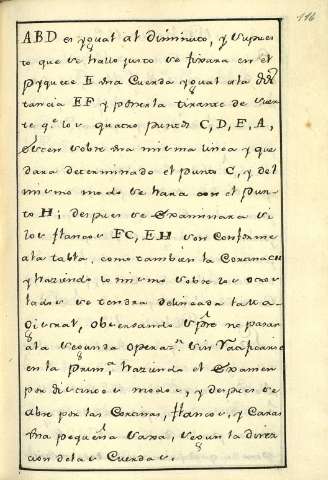 116
ABD es ygual al diminuto, y supues
to que se hallo justo se fixara en el
pyquete E una Cuerda ygual ala dis
tancia EF y ponerla tirante de suer
te q.e los quatro puntos C, D, F, A,
esten sobre una misma linea y que
dara determinado el punto C, y del
mismo modo se hara con el pun
to H; despues se examinara si
los flancos FC, EH son conforme
ala tabla, como tambien la Cortina CH
y haziendo lo mismo sobre los otros
lados se tendra delineada la Ma
gistral, observando spre no pasar
ala segunda opera.on sin ratificarse
en la prim.a haziendo el examen
por distintos modos, y despues se
abre por las Cortinas, flancos, y Caras
una pequeña zanxa, segun la direc
cion delas Cuerdas.